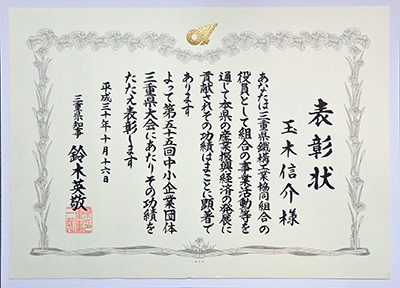 表彰状
玉木信介様
あなたは三重県鐵構工業協同組合の
役員として組合の事業活動等を
通じて本県の産業振興経済の発展に
貢献されその功績はまことに顕著で
あります
よって第五十五回中小企業団体
三重県大会にあたりその功績を
たたえ表彰します
平成三十年十月十六日
三重県知事
鈴木英敬